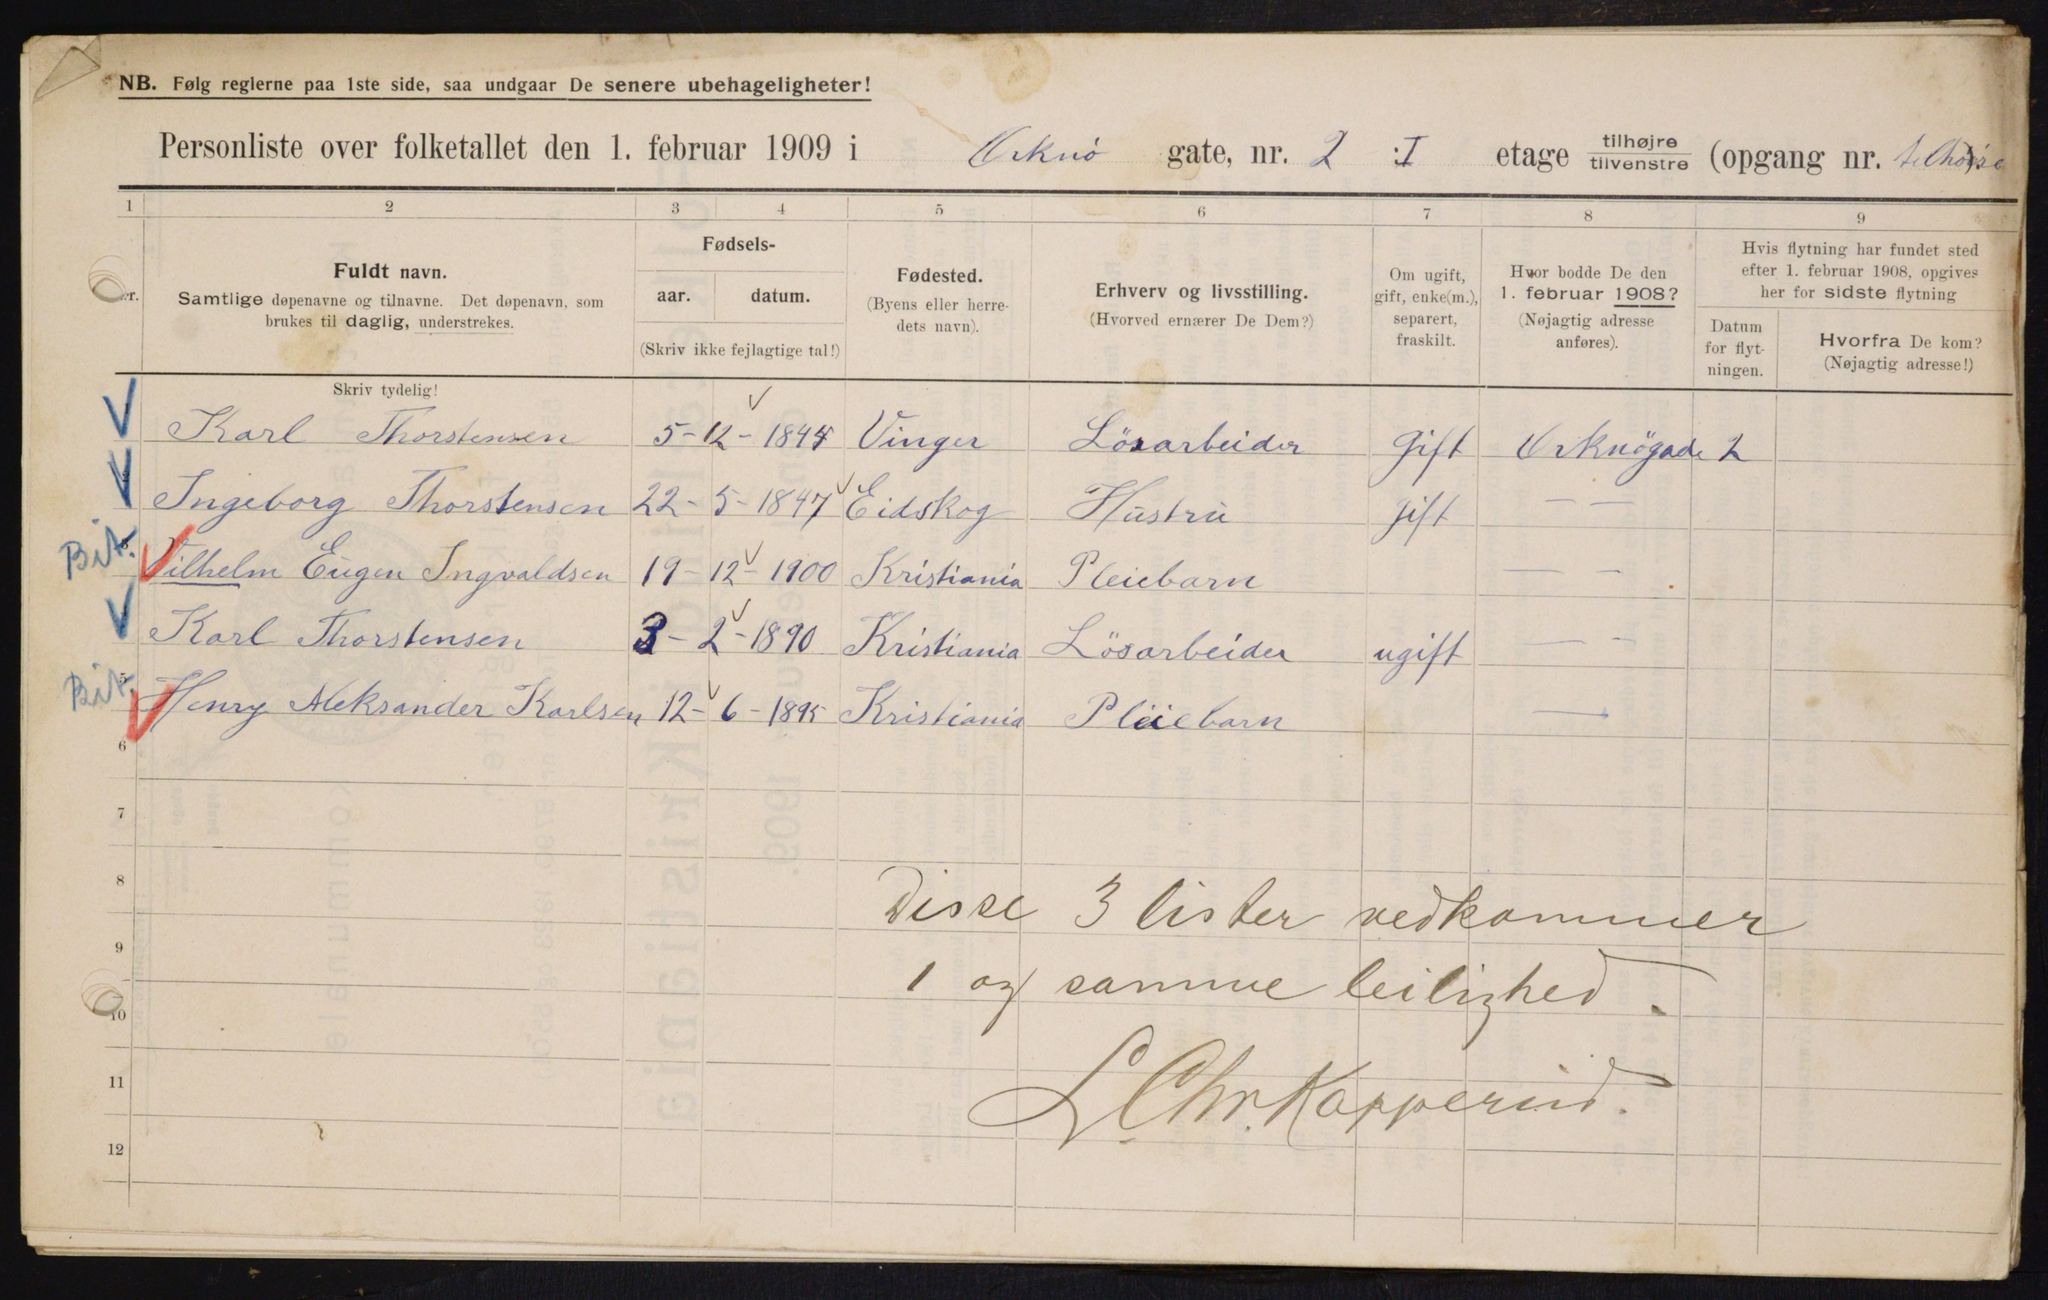 NB. Følg reglerne paa 1ste side, saa undgaar De senere ubehageligheter!
Personliste over folketallet den 1. februar 1909 i Orknö gate, nr. 2 I etage tilhøjre tilvenstre (opgang nr. tilhøire).
1 2 3 4 5 6 7 8 9
Nr.
Fuldt navn.
Samtlige døpenavne og tilnavne. Det døpenavn, som
brukes til daglig, understrekes.
Fødsels-
aar. datum.
(Skriv ikke fejlagtige tal!)
Fødested.
(Byens eller herre-
dets navn).
Erhverv og livsstilling.
(Hvorved ernærer De Dem?)
Om ugift,
gift, enke(m.),
separert,
fraskilt.
Hvor bodde De den
1. februar 1908?
(Nøjagtig adresse
anføres).
Hvis flytning har fundet sted
efter 1. februar 1908, opgives
her for sidste flytning
Datum
for flyt-
ningen.
Hvorfra De kom?
(Nøjagtig adresse!)
Skriv tydelig!
Karl Thorstensen 5-12-1844 Vinger Lösarbeider Gift Orknögade 2
Ingeborg Thorstensen 22-5-1847 Eidskog Hustru gift — —
Bit. 3 Vilhelm Eugen Ingvaldsen 19-12-1900 Kristiania Pleiebarn — —
Karl Thorstensen 3-2-1890 Kristiania Lösarbeider ugift — —
Bit. 5 Henry Aleksander Karlsen 12-6-1895 Kristiania Pleiebarn —
6
7
8
Disse 3 lister vedkommer
9
1 og samme leilighed.
10
11
L. Chr. Kapperud.
12